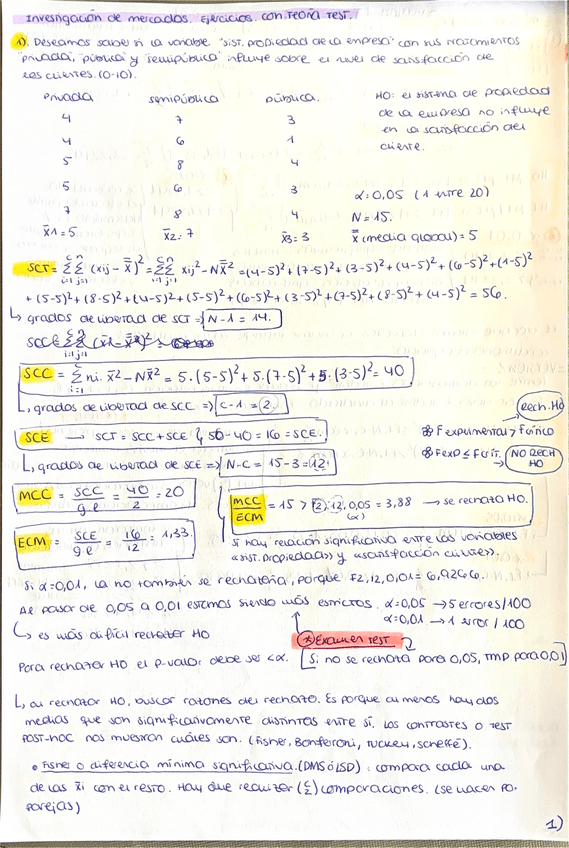 Investigación de mercados. Ejercicios. con TEORÍA TEST.
1). Deseamos saber si la variable "sist. propiedad de la empresa" con sus tratamientos
"privada, "pública y "semipública" influye sobre el nivel de satisfacción de
los clientes. (0-10).
privada semipública pública.
4 7 3
4 6 1
5 8 4
5 6 3
7 8 4
x̄1=5 x̄2=7 x̄3=3
H0: el sistema de propiedad
de la empresa no influye
en la satisfacción del
cliente.
α=0,05 (1 entre 20)
N=15.
x̿ (media global)=5
SCT= Σ Σ (xij-x̿)² = Σ Σ xij²-Nx̿² = (4-5)²+(7-5)²+(3-5)²+(4-5)²+(6-5)²+(1-5)²
+(5-5)²+(8-5)²+(4-5)²+(5-5)²+(6-5)²+(3-5)²+(7-5)²+(8-5)²+(4-5)² = 56.
↳ grados de libertad de SCT => N-1=14.
SCC = Σ ni. x̄²-Nx̿² = 5.(5-5)²+5.(7-5)²+5.(3-5)² = 40
↳ grados de libertad de SCC => c-1=2.
Rech. H0
SCE → SCT=SCC+SCE 56-40=16=SCE.
⊗ F experimental > F crítico
↳ grados de libertad de SCE => N-C=15-3=12.
⊗ Fexp ≤ Fcrit. → NO RECH H0
MCC = SCC/g.l = 40/2 = 20
MCC/ECM = 15 > F2,12,0,05 = 3,88 → se rechaza H0.
(α)
ECM = SCE/g.l = 16/12 = 1,33.
Si hay relación significativa entre las variables
«sist. propiedad» y «satisfacción cliente».
Si α=0,01, la H0 también se rechazaría, porque F2,12,0,01=6,9266.
Al pasar de 0,05 a 0,01 estamos siendo más estrictos. α=0,05 → 5 errores/100
α=0,01 → 1 error / 100
↳ es más difícil rechazar H0
Examen TEST
Para rechazar H0 el p-valor debe ser <α. [Si no se rechaza para 0,05, tmp para 0,01]
↳ al rechazar H0, buscar razones del rechazo. Es porque al menos hay dos
medias que son significativamente distintas entre sí. Los contrastes o test
POST-HOC nos muestran cuáles son. (Fisher, Bonferroni, Tuckey, Scheffé).
• Fisher o diferencia mínima significativa. (DMS ó LSD): compara cada una
de las x̄i con el resto. Hay que realizar (c/2) comparaciones. (se hacen po-
parejas)
1)